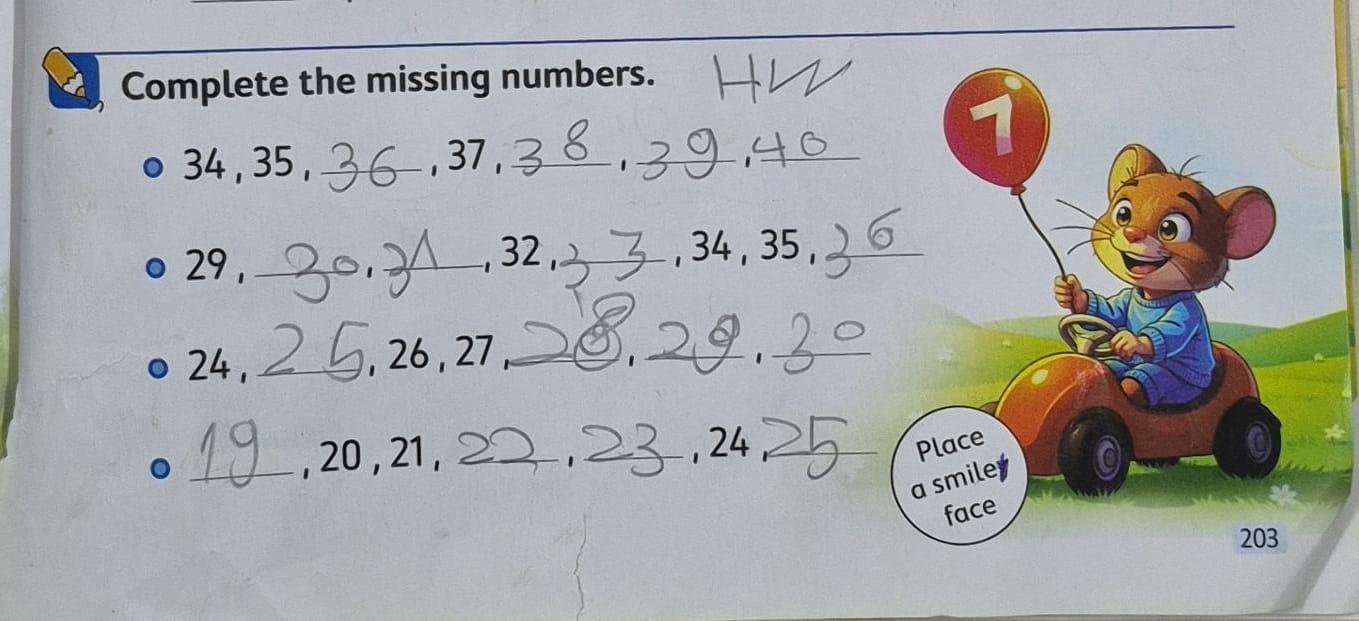 Complete the missing numbers. HW
34 , 35 , 36 , 37 , 38 , 39 , 40
29 , 30 , 31 , 32 , 33 , 34 , 35 , 36
24 , 25 , 26 , 27 , 28 , 29 , 30
19 , 20 , 21 , 22 , 23 , 24 , 25
7
Place
a smiley
face
203